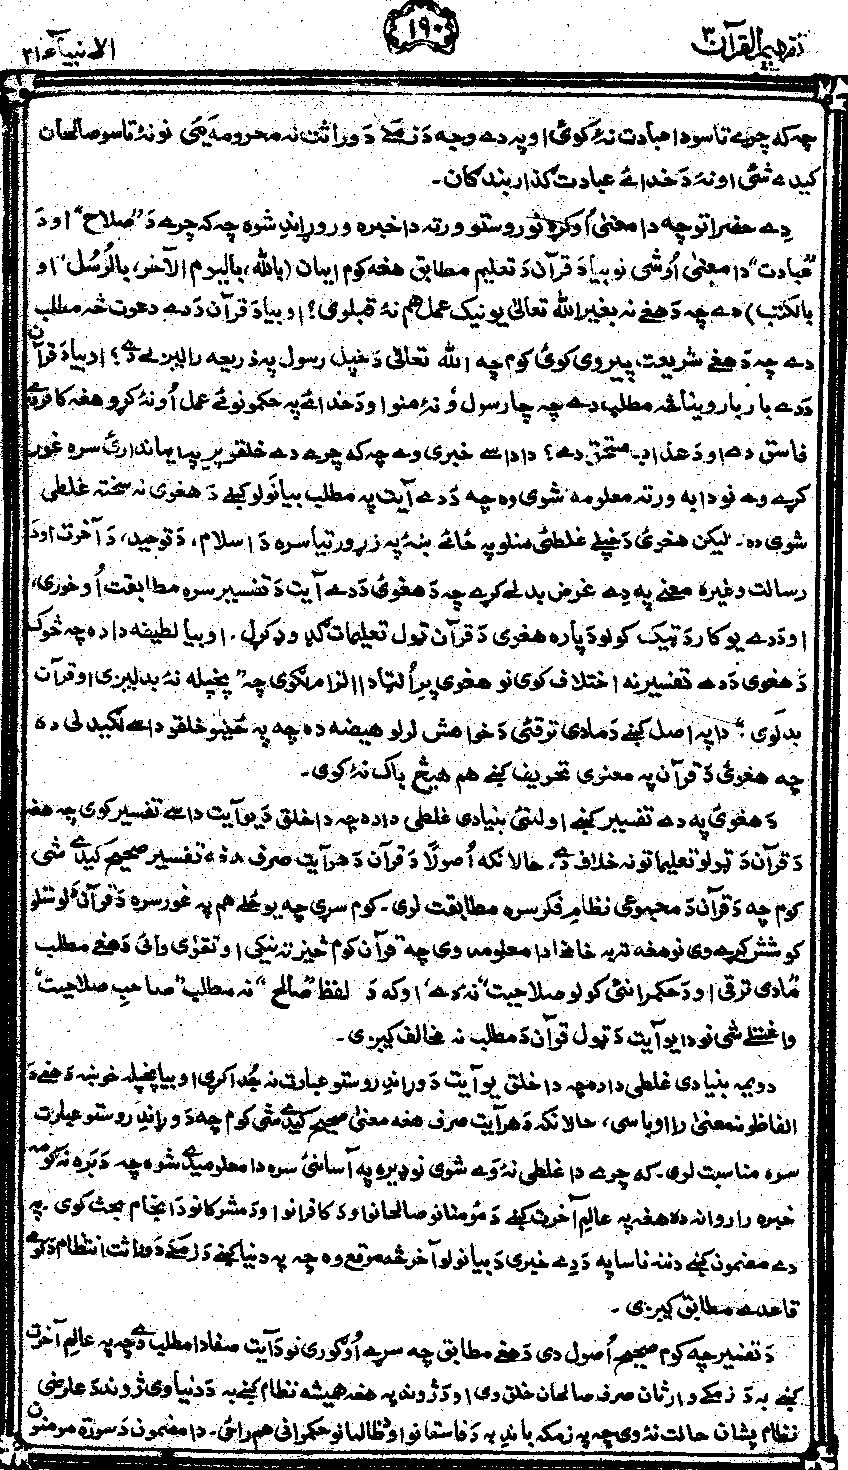 تفهیم القرآن ۳
۱۹۰
الانبیآء ۲۱
چه که چرے تاسو دا عبادت نۀ کوئ او په دے وجه د زمکے د وراثت نه محرومه یئ نو نۀ تاسو صالحان
کیدے شئ او نۀ د خدائے عبادت گذار بندگان۔
دے حضراتو چه دا معنیٰ اُوکړه نو روستو ورته دا خبره ور وړاندِ شوه چه که چرے د "صلاح" او د
"عبادت" دا معنیٰ اُوشی نو بیا د قرآن د تعلیم مطابق هغه کوم ایمان (بالله، بالیوم الآخر، بالرُسل، او
بالکتب) دے چه د هغے نه بغیر الله تعالیٰ یو نیک عمل هم نۀ قبلوی؟ او بیا د قرآن د دے دعوت څه مطلب
دے چه د هغے شریعت پیروی کوئ کوم چه الله تعالیٰ د خپل رسول په ذریعه رالیږلے دے؟ او بیا د قرآن
د دے بار بار وینا څه مطلب دے چه چا رسول ؤ نۀ منو او د خدائے په حکمونوئے عمل اُونۀ کړو هغه کافر دے
فاسق دے او د عذاب مستحق دے؟ دا داسے خبرې وے چه که چرے دے خلقو پرې په ایماندارئ سره غور
کړے وے نو دا به ورته معلومه شوی وه چه د دے آیت په مطلب بیانولو کښے د هغوی نه سخته غلطی
شوی ده۔ لیکن هغوئ د خپلے غلطئ منلو په ځائے ښۀ په زړورتیا سره د اسلام، د توحید، د آخرت او د
رسالت وغیره معنے په دے غرض بدلے کړے چه د هغوئ د دے آیت د تفسیر سره مطابقت اُوخوری،
او د دے یو کار د ټیک کولو د پاره هغوی د قرآن ټول تعلیمات گډ وډ کړل۔ او بیا لطیفه دا ده چه څوک
د هغوی د دے تفسیر نه اختلاف کوی نو هغوی پرِ اُلټه دا الزام لگوی چه "پخپله نۀ بدلیږی او قرآن
بدلوی"۔ دا په اصل کښے د مادی ترقئ د خواهش لرلو هیضه ده چه په ځینو خلقو داسے لگیدلی ده
چه هغوئ د قرآن په معنوی تحریف کښے هم هیڅ باک نۀ کوی۔
د هغوئ په دے تفسیر کښے اولنئ بنیادی غلطی دا ده چه دا خلق د یو آیت داسے تفسیر کوی چه هغه
د قرآن د ټولو تعلیماتو نه خلاف دے، حالانکه اُصولاً د قرآن د هر آیت صرف هغه تفسیر صحیح کیدے شی
کوم چه د قرآن د مجموعی نظامِ فکر سره مطابقت لری۔ کوم سړی چه یو ځلے هم په غور سره د قرآن د لوستلو
کوشش کړے وی نو هغه ته به خامخا دا معلومه وی چه قرآن کوم څیز ته نیکی او تقوٰی وائی د هغے مطلب
"مادی ترقی او د حکمرانئ کولو صلاحیت" نه دے، او که د لفظ "صالح" نه مطلب "صاحبِ صلاحیت"
واغستلے شی نو دا یو آیت د ټول قرآن د مطلب نه مخالف کیږی۔
دویمه بنیادی غلطی دا ده چه دا خلق یو آیت د وړاندِ روستو عبارت نه جُدا کړی او بیا پخپله خوښه د هغے د
الفاظو نه معنیٰ را اوباسی، حالانکه د هر آیت صرف هغه معنیٰ صحیح کیدے شی کوم چه د وړاندِ روستو عبارت
سره مناسبت لری۔ که چرے دا غلطی نۀ وے شوی نو ډیره په آسانئ سره دا معلومیدے شوه چه د بره نه کومه
خبره را روانه ده هغه په عالمِ آخرت کښے د مؤمنانو صالحانو او د کافرانو او د مشرکانو د انجام بحث کوی۔ په
دے مضمون کښے دننه ناسا په د دے خبرې د بیانولو آخر څه موقع وه چه په دنیا کښے د زمکے د وراثت انتظام د کومے
قاعدے مطابق کیږی۔
د تفسیر چه کوم صحیح اُصول دی د هغے مطابق چه سړے اُوگوری نو د آیت صفا دا مطلب دے چه په عالمِ آخرت
کښے به د زمکے وارثان صرف صالحان خلق وی او د ژوند په هغه همیشه نظام کښے به د دنیاوی ژوند د عارضی
نظام پشان حالت نۀ وی چه په زمکه باندِ به د فاسقانو او ظالمانو حکمرانی هم راځی۔ دا مضمون د سورة مومنون